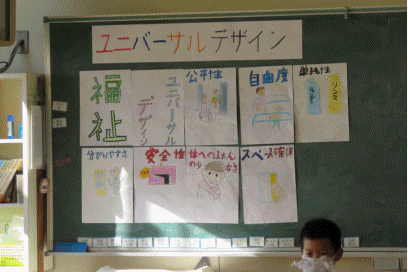 ユニバーサルデザイン
福祉
ユニバーサル
デザイン
公平性
自由度
単純性
リンス
分かりやすさ
安全性
体へのふたん
の少なさ
スペース確保